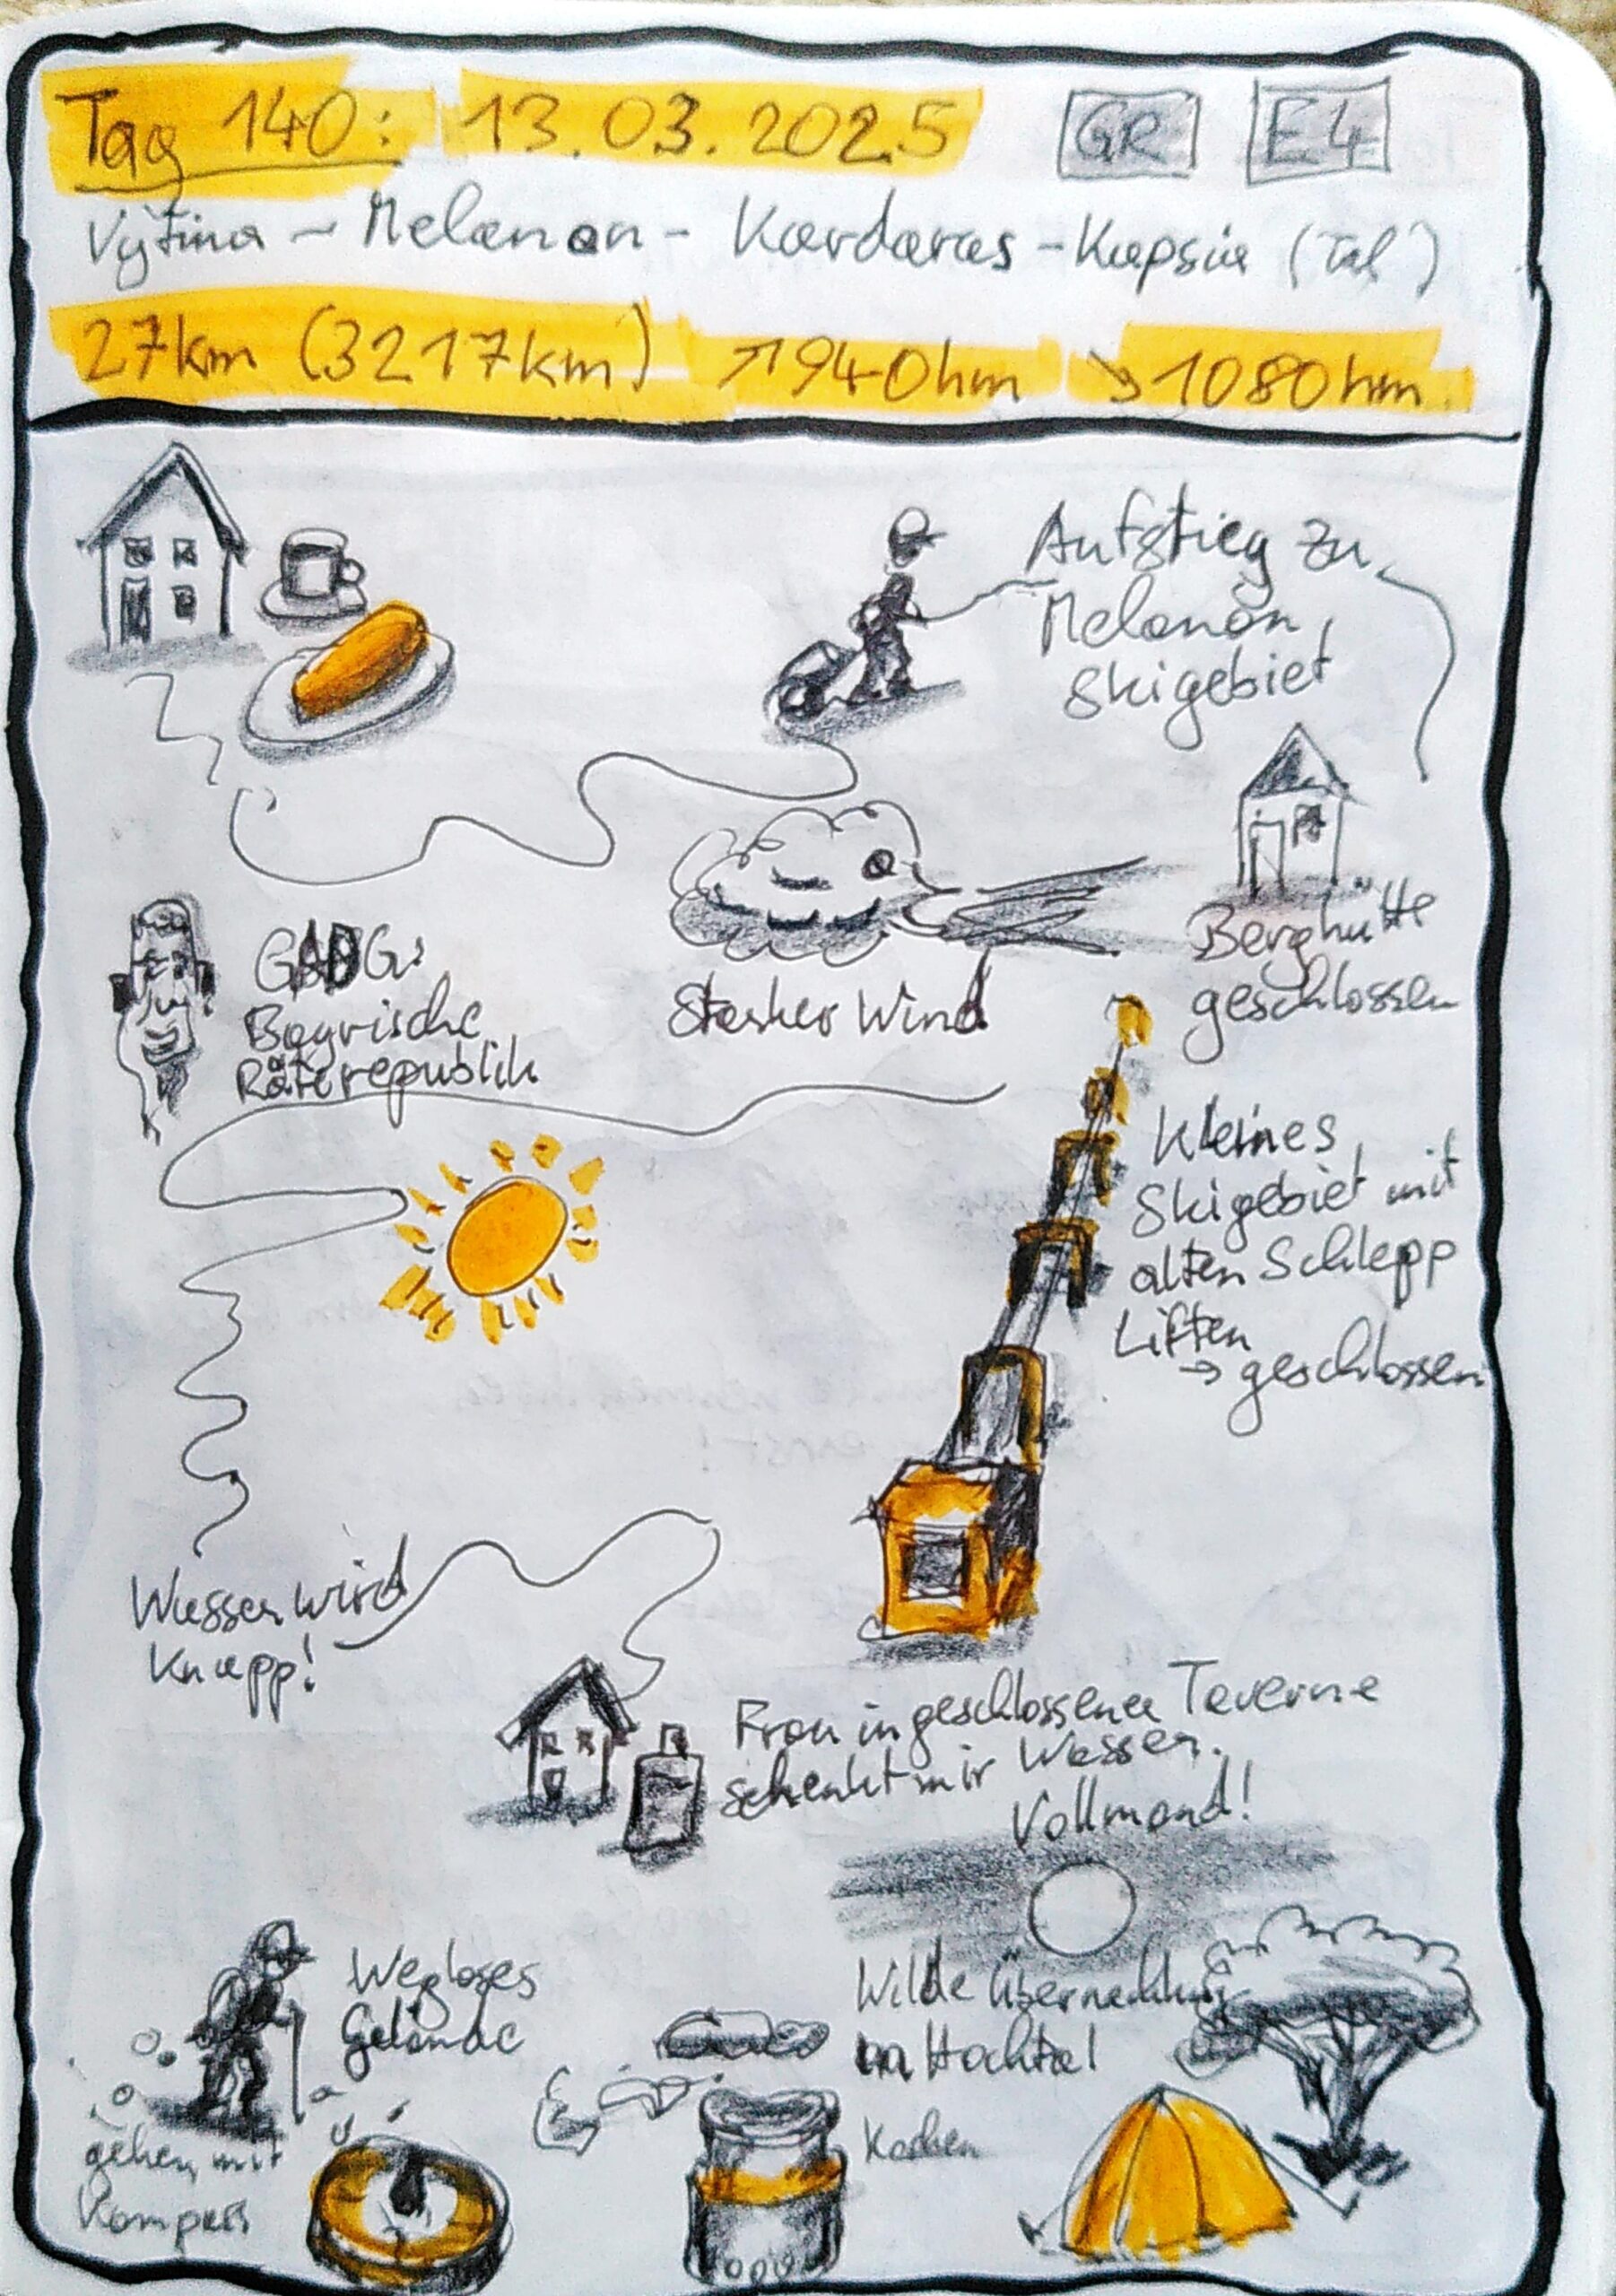 Tag 140: 13.03.2025 GR E4
Vytina - Melanon - Kardaras - Kapsia (Tal)
27km (3217km) ↗940hm ↘1080hm
Aufstieg zu
Melanon,
Skigebiet
Berghütte
geschlossen
GAG:
Bayrische
Räterepublik
Starker Wind
Kleines
Skigebiet mit
alten Schlepp
Liften
→ geschlossen
Wasser wird
Knapp!
Frau in geschlossener Taverne
schenkt mir Wasser.
Vollmond!
Wegloses
Gelände
gehen mit
Kompass
Wilde Übernachtung
im Hochtal
Kochen